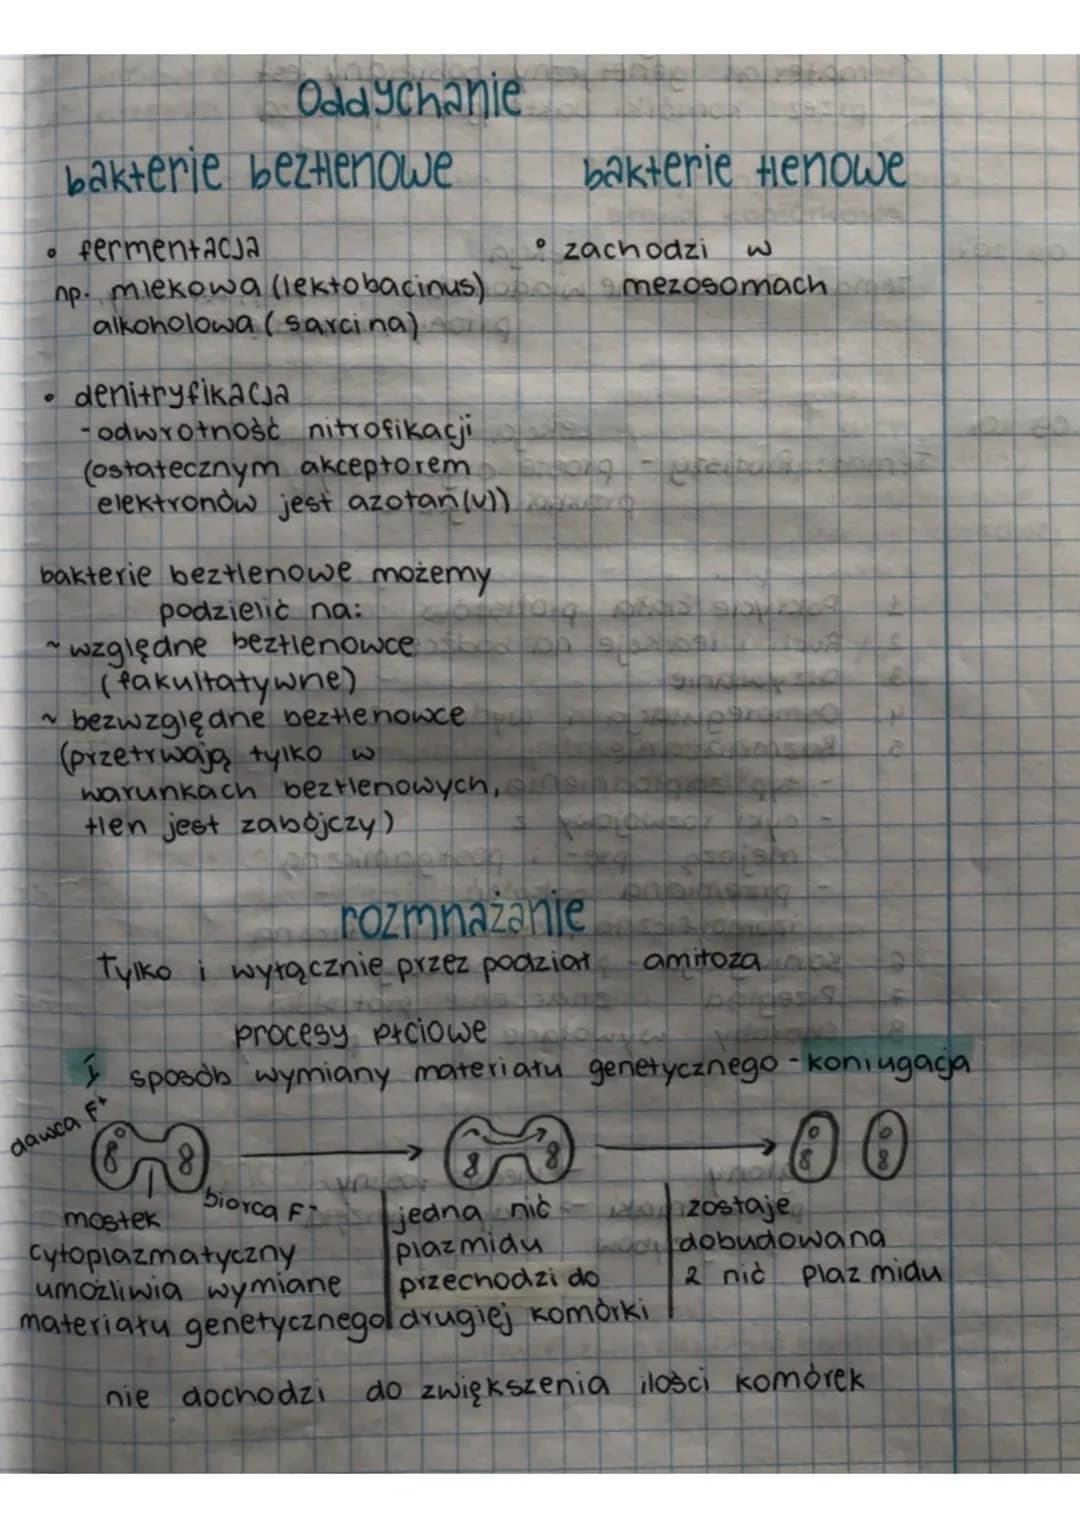 Oddychanie
bakterie beztlenowe
bakterie tlenowe
• fermentacja
np. mlekowa (lektobacinus)
alkoholowa (sarcina)
• zachodzi w
mezosomach
• denitryfikacja
- odwrotność nitrofikacji
(ostatecznym akceptorem
elektronów jest azotan(v))
bakterie beztlenowe możemy
podzielić na:
~ względne beztlenowce
(fakultatywne)
~ bezwzględne beztlenowce
(przetrwają tylko w
warunkach beztlenowych,
tlen jest zabójczy)
rozmnażanie
Tylko i wyłącznie przez podział amitoza
procesy płciowe
sposób wymiany materiału genetycznego - koniugacja
dawca F+
biorca F-
mostek
cytoplazmatyczny
umożliwia wymianę
materiału genetycznego
jedna nić
plazmidu
przechodzi do
drugiej komórki
zostaje
dobudowana
2 nić plazmidu
nie dochodzi do zwiększenia ilości komórek